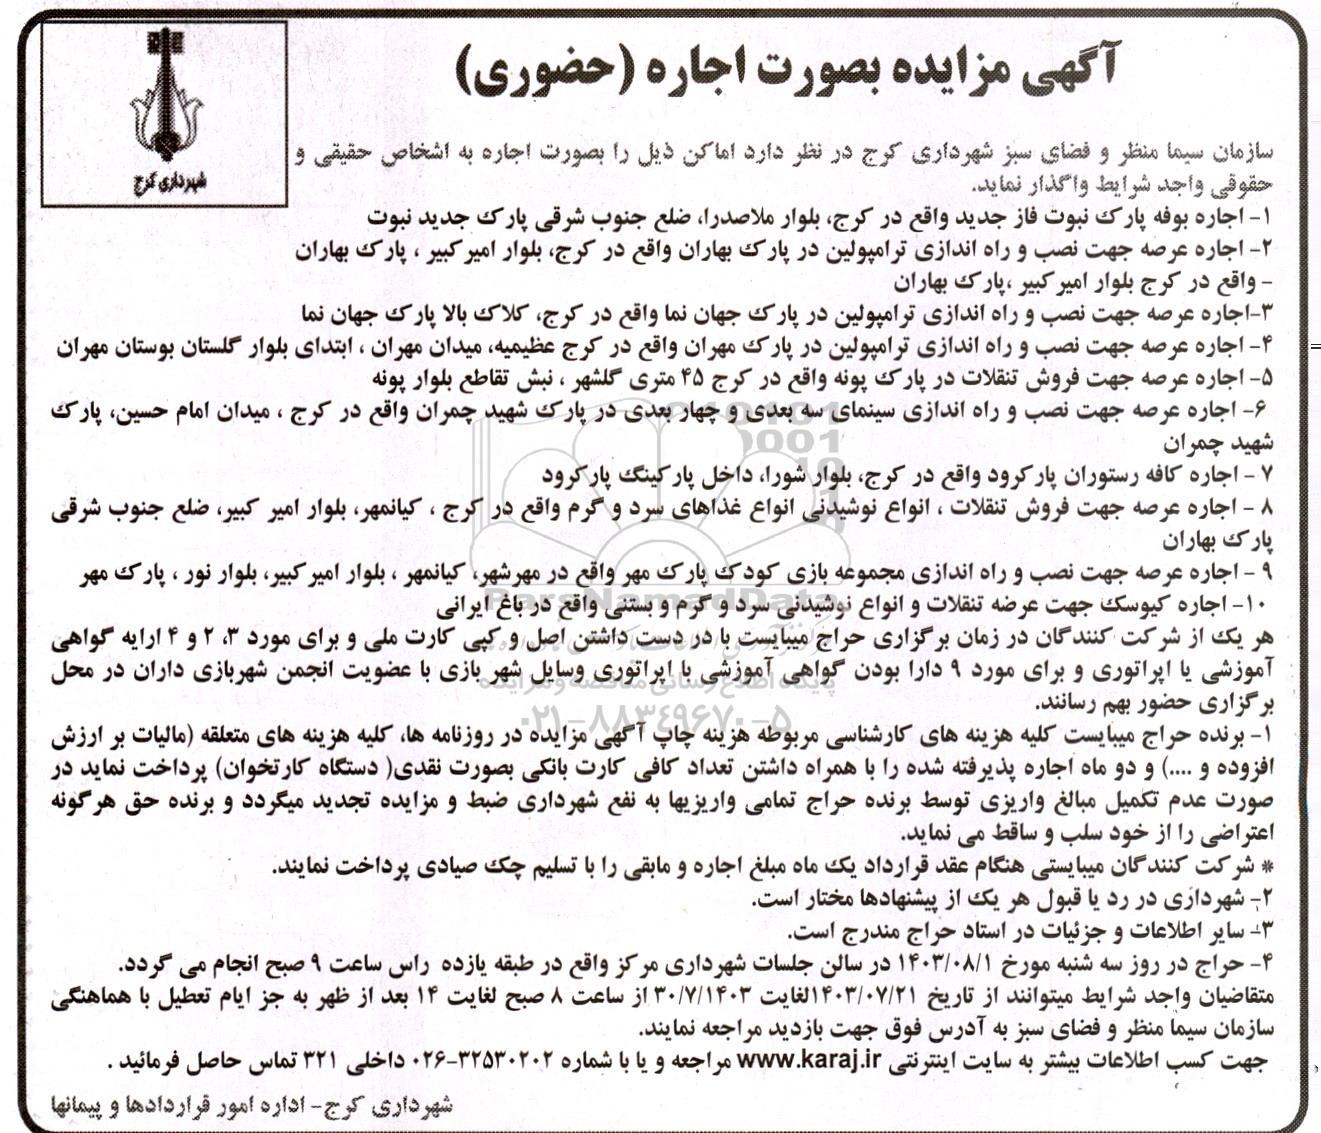 آگهی مزایده بصورت اجاره (حضوری)
شهرداری کرج
سازمان سیما منظر و فضای سبز شهرداری کرج در نظر دارد اماکن ذیل را بصورت اجاره به اشخاص حقیقی و
حقوقی واجد شرایط واگذار نماید.
۱- اجاره بوفه پارک نبوت فاز جدید واقع در کرج، بلوار ملاصدرا، ضلع جنوب شرقی پارک جدید نبوت
۲- اجاره عرصه جهت نصب و راه اندازی ترامپولین در پارک بهاران واقع در کرج، بلوار امیر کبیر ، پارک بهاران
- واقع در کرج بلوار امیر کبیر ،پارک بهاران
۳-اجاره عرصه جهت نصب و راه اندازی ترامپولین در پارک جهان نما واقع در کرج، کلاک بالا پارک جهان نما
۴- اجاره عرصه جهت نصب و راه اندازی ترامپولین در پارک مهران واقع در کرج عظیمیه، میدان مهران ، ابتدای بلوار گلستان بوستان مهران
۵- اجاره عرصه جهت فروش تنقلات در پارک پونه واقع در کرج ۴۵ متری گلشهر ، نبش تقاطع بلوار پونه
۶- اجاره عرصه جهت نصب و راه اندازی سینمای سه بعدی و چهار بعدی در پارک شهید چمران واقع در کرج ، میدان امام حسین، پارک
شهید چمران
۷ - اجاره کافه رستوران پارکرود واقع در کرج، بلوار شورا، داخل پارکینگ پارکرود
۸ - اجاره عرصه جهت فروش تنقلات ، انواع نوشیدنی انواع غذاهای سرد و گرم واقع در کرج ، کیانمهر، بلوار امیر کبیر، ضلع جنوب شرقی
پارک بهاران
۹ - اجاره عرصه جهت نصب و راه اندازی مجموعه بازی کودک پارک مهر واقع در مهرشهر، کیانمهر ، بلوار امیرکبیر، بلوار نور ، پارک مهر
۱۰- اجاره کیوسک جهت عرضه تنقلات و انواع نوشیدنی سرد و گرم و بستنی واقع در باغ ایرانی
هر یک از شرکت کنندگان در زمان برگزاری حراج میبایست با در دست داشتن اصل و کپی کارت ملی و برای مورد ۳، ۲ و ۴ ارایه گواهی
آموزشی یا اپراتوری و برای مورد ۹ دارا بودن گواهی آموزشی با اپراتوری وسایل شهر بازی با عضویت انجمن شهربازی داران در محل
برگزاری حضور بهم رسانند.
۱- برنده حراج میبایست کلیه هزینه های کارشناسی مربوطه هزینه چاپ آگهی مزایده در روزنامه ها، کلیه هزینه های متعلقه (مالیات بر ارزش
افزوده و ....) و دو ماه اجاره پذیرفته شده را با همراه داشتن تعداد کافی کارت بانکی بصورت نقدی( دستگاه کارتخوان) پرداخت نماید در
صورت عدم تکمیل مبالغ واریزی توسط برنده حراج تمامی واریزیها به نفع شهرداری ضبط و مزایده تجدید میگردد و برنده حق هرگونه
اعتراضی را از خود سلب و ساقط می نماید.
* شرکت کنندگان میبایستی هنگام عقد قرارداد یک ماه مبلغ اجاره و مابقی را با تسلیم چک صیادی پرداخت نمایند.
۲- شهرداری در رد یا قبول هر یک از پیشنهادها مختار است.
۳- سایر اطلاعات و جزئیات در اسناد حراج مندرج است.
۴- حراج در روز سه شنبه مورخ ۱۴۰۳/۰۸/۱ در سالن جلسات شهرداری مرکز واقع در طبقه یازده راس ساعت ۹ صبح انجام می گردد.
متقاضیان واجد شرایط میتوانند از تاریخ ۱۴۰۳/۰۷/۲۱لغایت ۳۰/۷/۱۴۰۳ از ساعت ۸ صبح لغایت ۱۴ بعد از ظهر به جز ایام تعطیل با هماهنگی
سازمان سیما منظر و فضای سبز به آدرس فوق جهت بازدید مراجعه نمایند.
جهت کسب اطلاعات بیشتر به سایت اینترنتی www.karaj.ir مراجعه و یا با شماره ۳۲۵۳۰۲۰۲-۰۲۶ داخلی ۳۲۱ تماس حاصل فرمائید .
شهرداری کرج- اداره امور قراردادها و پیمانها
ParsNamadData
پایگاه اطلاع رسانی مناقصه و مزایده
۰۲۱-۸۸۳۴۹۶۷۰-۵